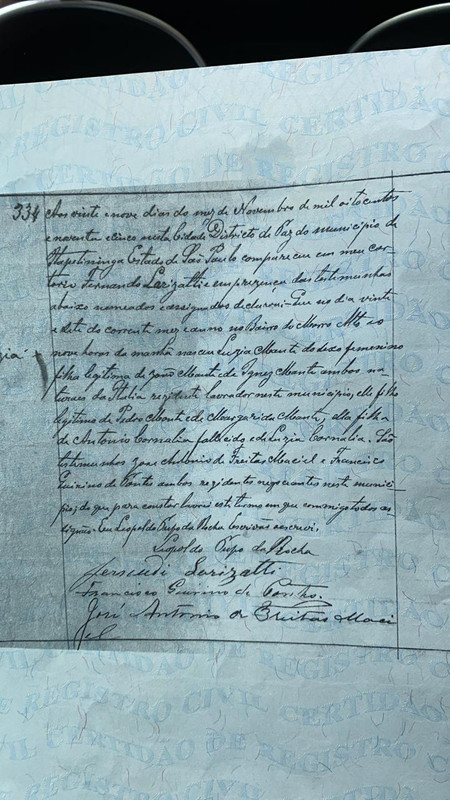 334
Aos vinte e nove dias do mez de Novembro de mil oitocentos
e noventa e cinco nesta Cidade Districto de Paz do municipio de
Itapetininga Estado de São Paulo compareceu em meu car
torio Fernando Larizatti e em prezença das testemunhas
abaixo nomeados e assignados declarou: Que no dia vinte
e sete do corrente mez e anno no Bairro do Morro Alto as
nove horas da manhã nasceu Luzia Monte do sexo femenino
filha legitima de João Monte e de Ignez Monte ambos na
turaes da Italia rezidente lavrador neste municipio, elle filho
legitimo de Pedro Monte e de Margarida Monte, ella filha
de Antonio Cornalia fallecido e de Luzia Cornalia. São
testemunhas José Antonio de Freitas Maciel e Francisco
de Pontes ambos rezidentes negociantes neste munici-
pio; do que para constar lavrei este termo em que commigo todos as-
signão. Eu Leopoldo da Rocha Escrivão escrevi.
Leopoldo da Rocha
Larizatti
Francisco de Pontes.
José Antonio de Freitas Maci
el
CERTIDÃO DE REGISTRO CIVIL